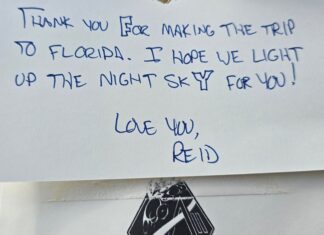 THANK YOU FOR MAKING THE TRIP
TO FLORIDA. I HOPE WE LIGHT
UP THE NIGHT SKY FOR YOU!
LOVE YOU,
REID